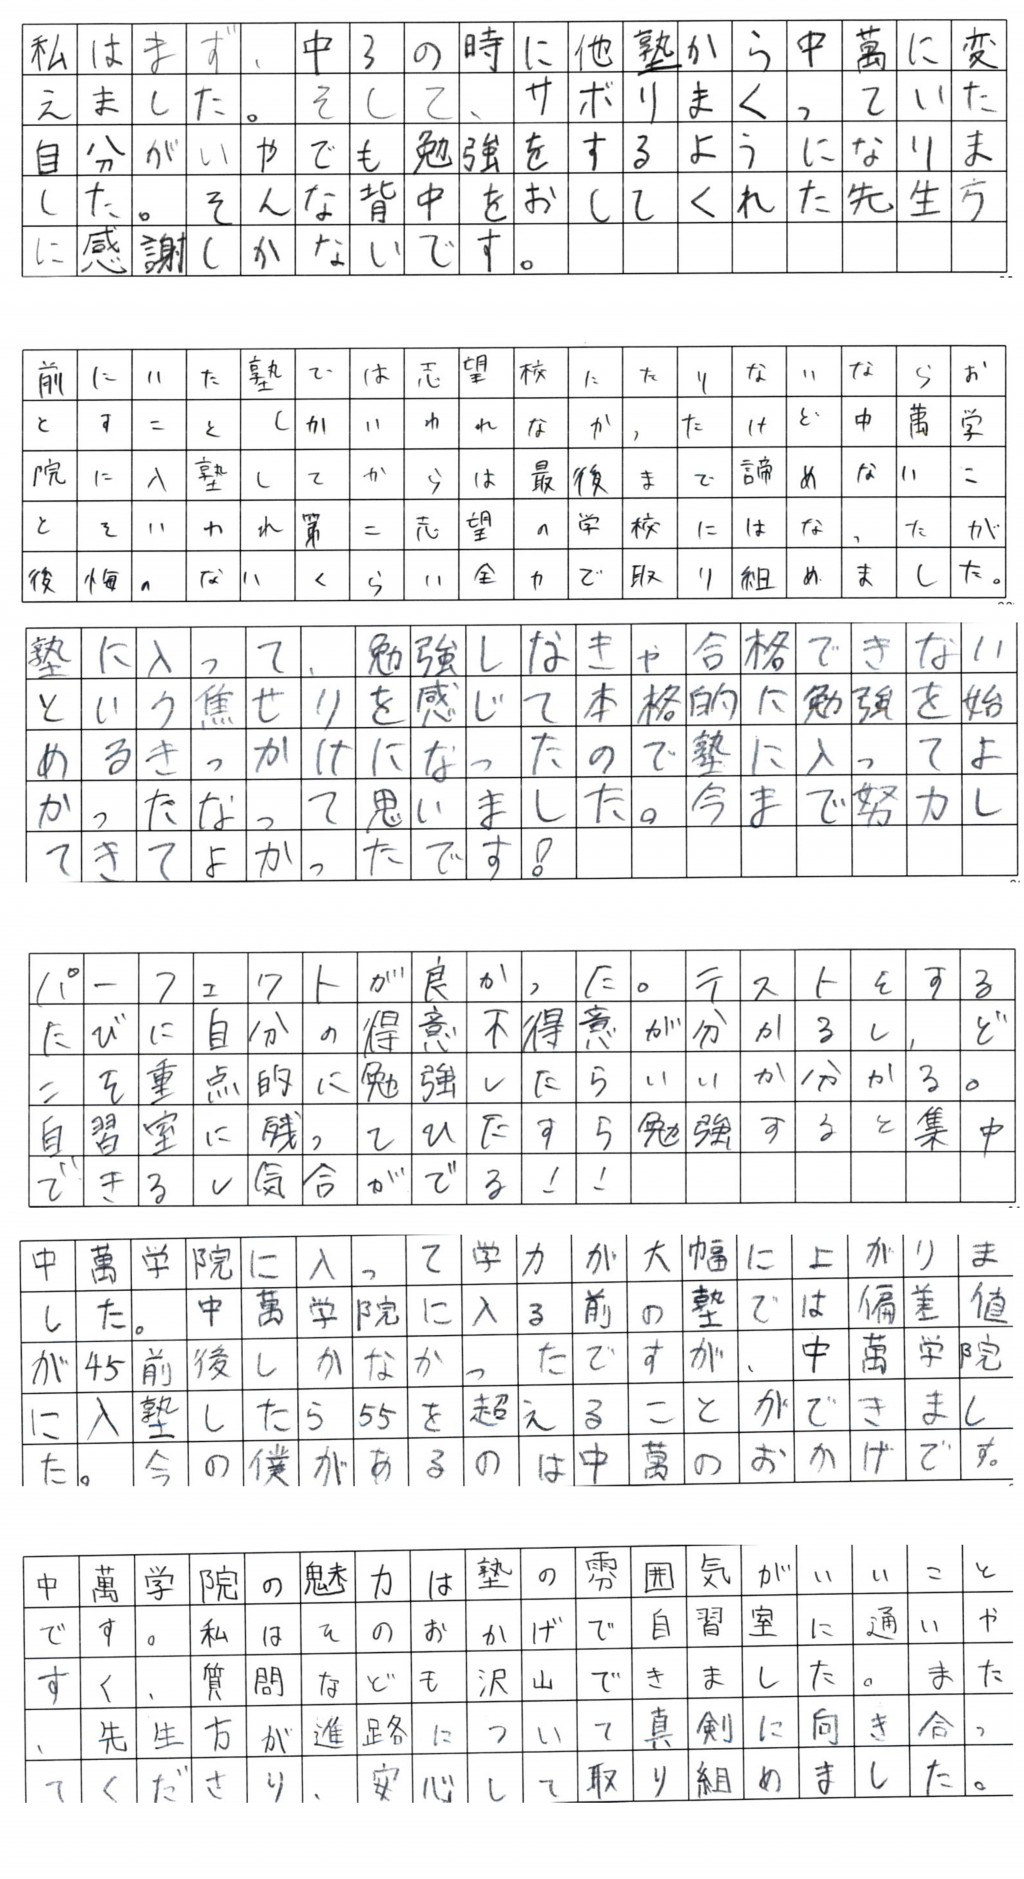 私はまず、中3の時に他塾から中萬に変
えました。そして、サボりまくっていた
自分がいやでも勉強をするようになりま
した。そんな背中をおしてくれた先生方
に感謝しかないです。
前にいた塾では志望校にたりないならお
とすことしかいわれなかったけど中萬学
院に入塾してからは最後まで諦めないこ
とをいわれ第二志望の学校にはなったが
後悔のないくらい全力で取り組めました。
塾に入って、勉強しなきゃ合格できない
という焦せりを感じて本格的に勉強を始
めるきっかけになったので塾に入ってよ
かったなって思いました。今まで努力し
てきてよかったです!
パーフェクトが良かった。テストをする
たびに自分の得意不得意が分かるし、ど
こを重点的に勉強したらいいか分かる。
自習室に残ってひたすら勉強すると集中
できるし気合がでる!!
中萬学院に入って学力が大幅に上がりま
した。中萬学院に入る前の塾では偏差値
が45前後しかなかったですが、中萬学院
に入塾したら55を超えることができまし
た。今の僕があるのは中萬のおかげです。
中萬学院の魅力は塾の雰囲気がいいこと
です。私はそのおかげで自習室に通いや
すく、質問なども沢山できました。また
、先生方が進路について真剣に向き合っ
てくださり、安心して取り組めました。